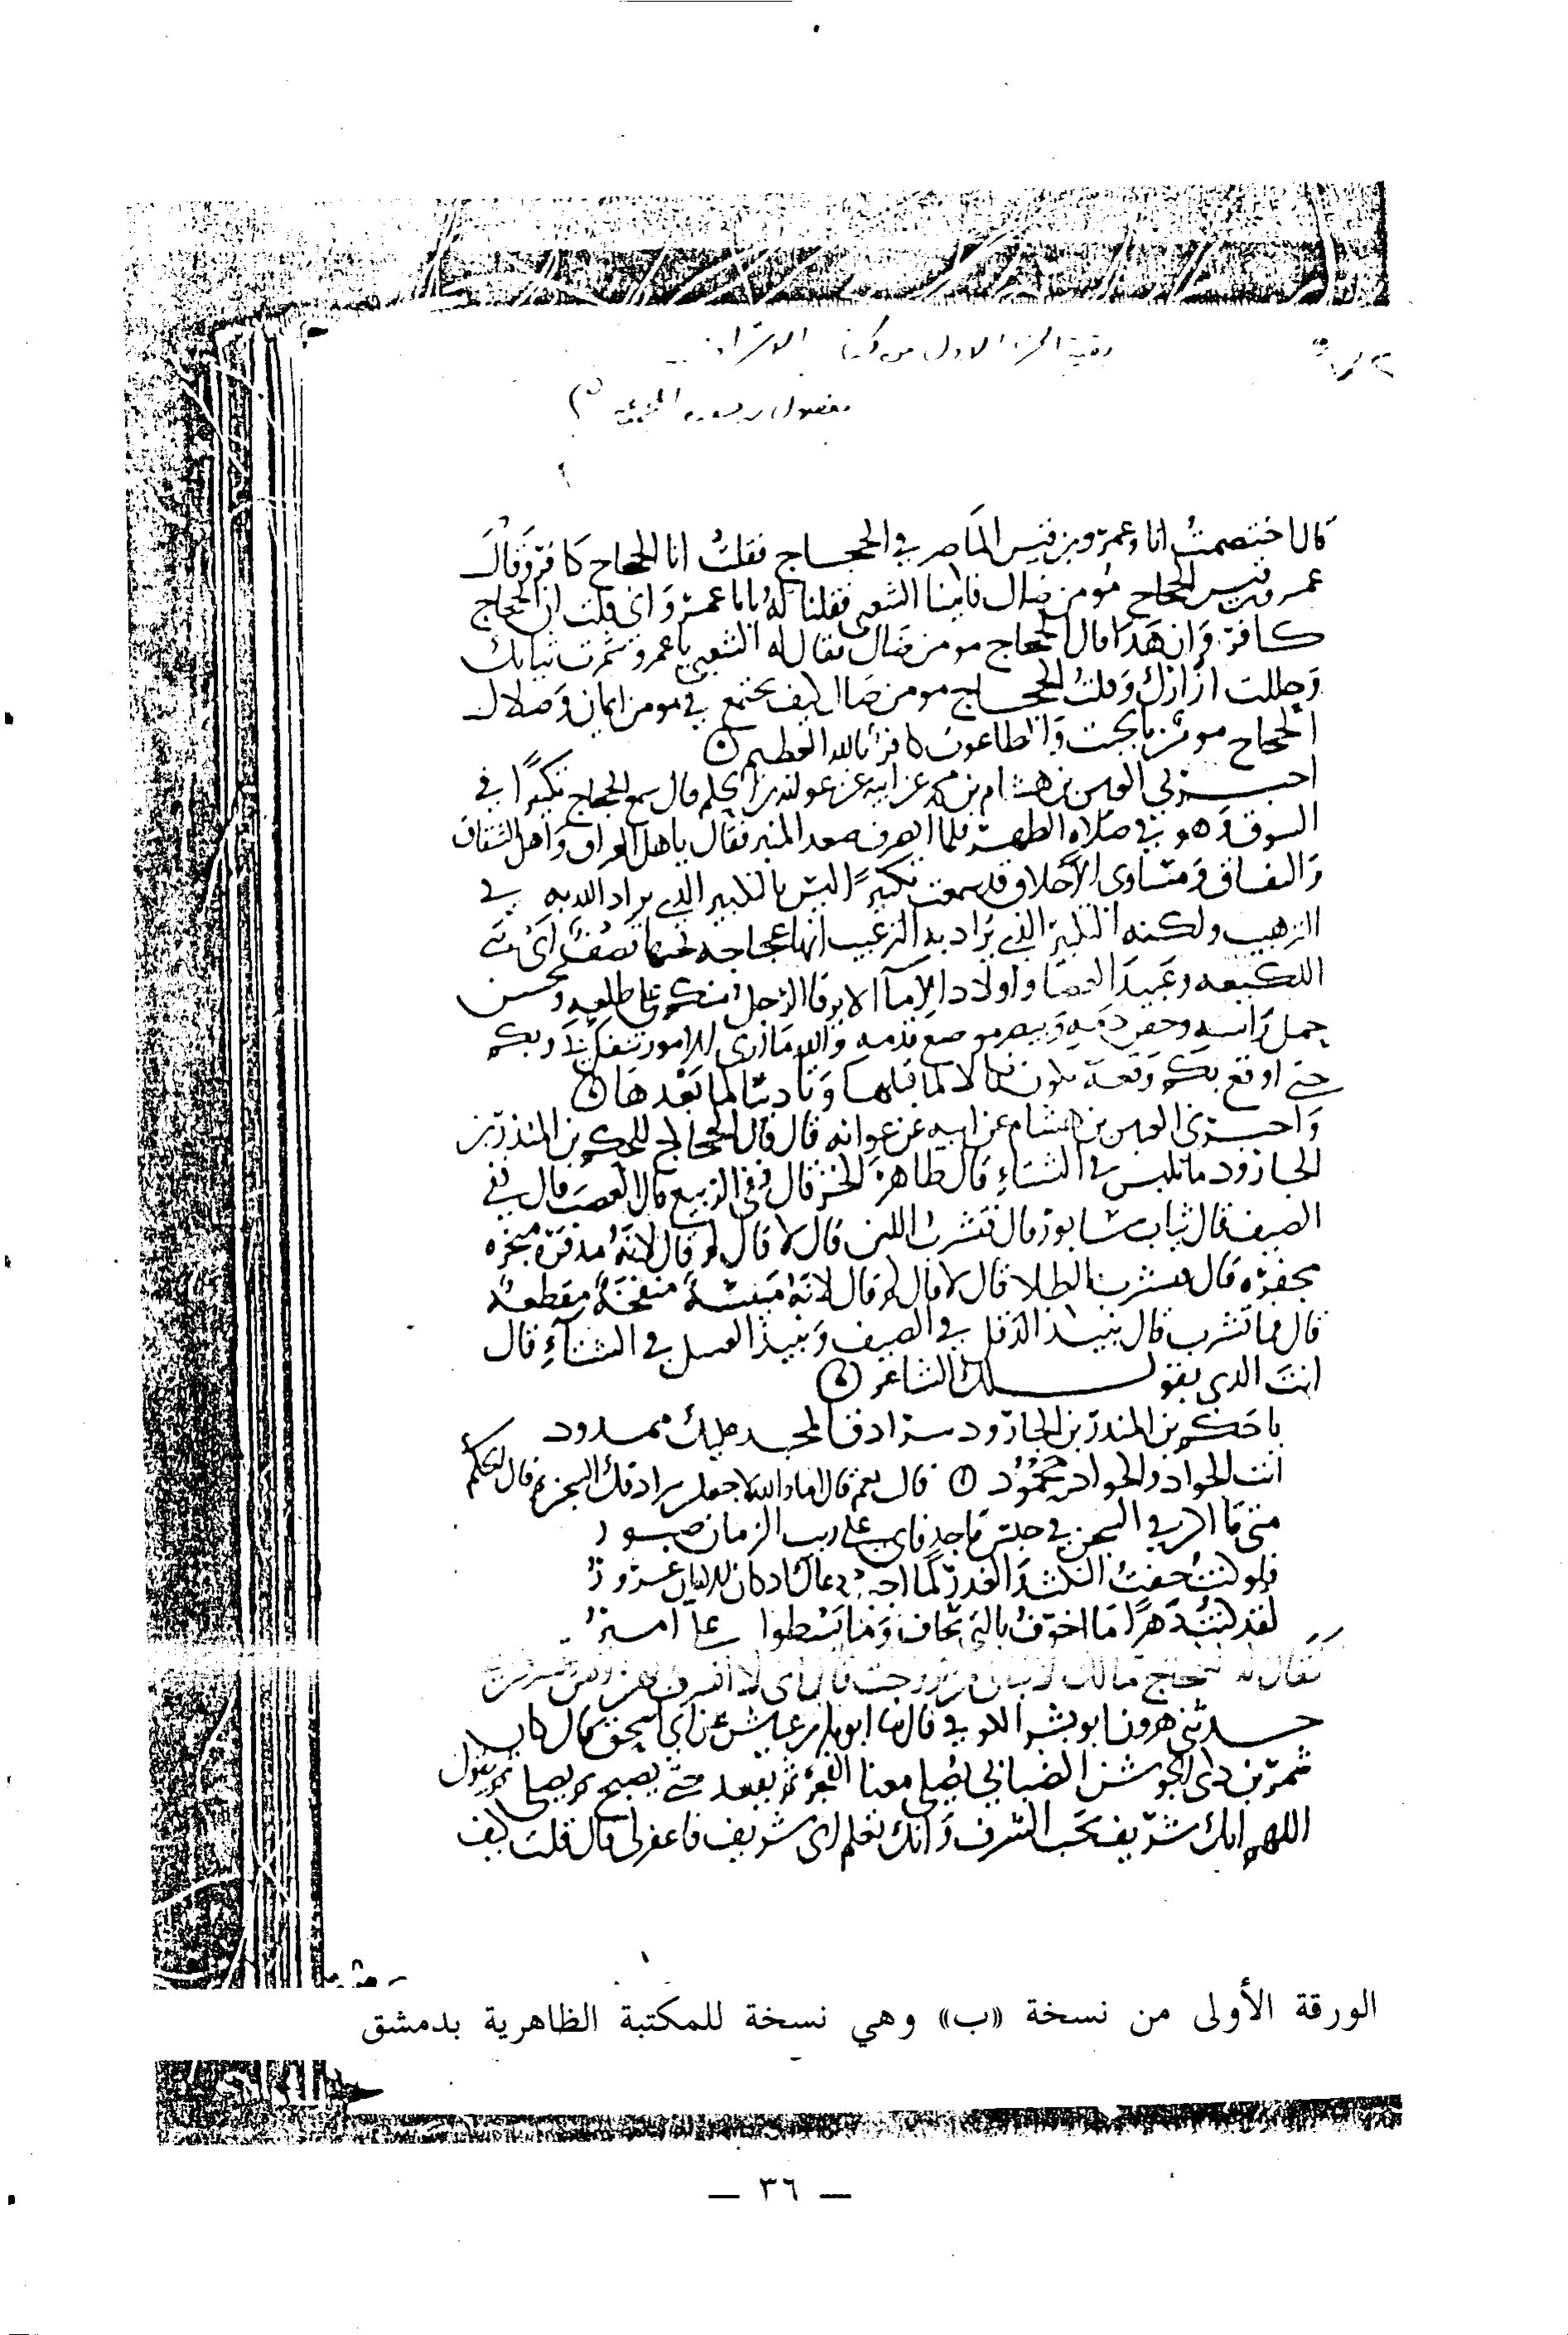 بقية الجزء الاول من كتاب الاشراف
قال اختصمتُ انا وعمرو بن قيس الماصر في الحجاج فقلتُ انا الحجاج كافر وقال
عمرو بن قيس الحجاج مؤمن ضال فاتينا الشعبي فقلنا له يابا عمرو اني قلت ان الحجاج
كافر وان هذا قال الحجاج مومن ضال فقال له الشعبي يا عمرو شمرت ثيابك
وحللت ازارك وقلت الحجاج مومن ضال كيف يجتمع في مومن ايمان وضلال
الحجاج مومن بالجبت والطاغوت كافر بالله العظيم
اخبرني العباس بن هشام بن محمد عن ابيه عن عوانة بن الحكم قال سمع الحجاج تكبيرًا في
السوق وهو في صلاة الظهر فلما انصرف صعد المنبر فقال يا اهل العراق واهل الشقاق
والنفاق ومساوي الاخلاق قد سمعت تكبيرًا ليس بالتكبير الذي يراد الله به في
الترهيب ولكنه التكبير الذي يُراد به الترغيب انها عجاجه تحتها قصف اي بني
اللكيعه وعبيد العصا واولاد الاما الا يرقا الرجل منكم على ظلعه ويحسن
حمل راسه وحقن دمه ويبصر موضع قدمه والله ما ارى الامور تنفك بي وبكم
حتى اوقع بكم وقعة تكون نكالا لما قبلها وتاديبًا لما بعدها
واخبرني العباس بن هشام عن ابيه عن عوانه قال قال الحجاج للحكم بن المنذر بن
الجارود ما تلبس في الشتاءِ قال ظاهرة الخز قال ففي الربيع قال العصب قال ففي
الصيف قال ثياب سابور قال فتشرب اللبن قال لا قال لم قال لانه مذفره مبخره
مجفره قال فتشرب الطلا قال لا قال لم قال لانه منفخة مقطعة
قال فما تشرب قال نبيذ الدقل في الصيف ونبيذ العسل في الشتاءِ قال
انت الذي يقول لك الشاعر
يا حكم بن المنذر بن الجارود سرادق المجد عليك ممدود
انت الجواد والجواد محمود قال نعم قال اما والله لاجعلن سرادقك السجن قال الحكم
متى ما اكن في السجن في حبس ماجد فاني على ريب الزمان صبور
فلو كنتُ خفتُ النكث والغدر لما اجب دعاك اذ كان اللسان غرور
لقد كنتُ دهرًا ما اخوّف بالتي تخاف وما يسطوا علي امير
فقال له الحجاج مالك
حدثني هرون ابو بشر قال ابو بكر بن عياش عن ابي اسحق قال كان
شمر بن ذي الجوشن الضبابي يُصلي معنا الفجر ثم يقعد حتى يصبح ثم يصلي ثم يقول
اللهم انك شريف تحب الشرف وانك تعلم اني شريف فاغفر لي قال قلت كيف
الورقة الأولى من نسخة «ب» وهي نسخة للمكتبة الظاهرية بدمشق
— ٣٦ —